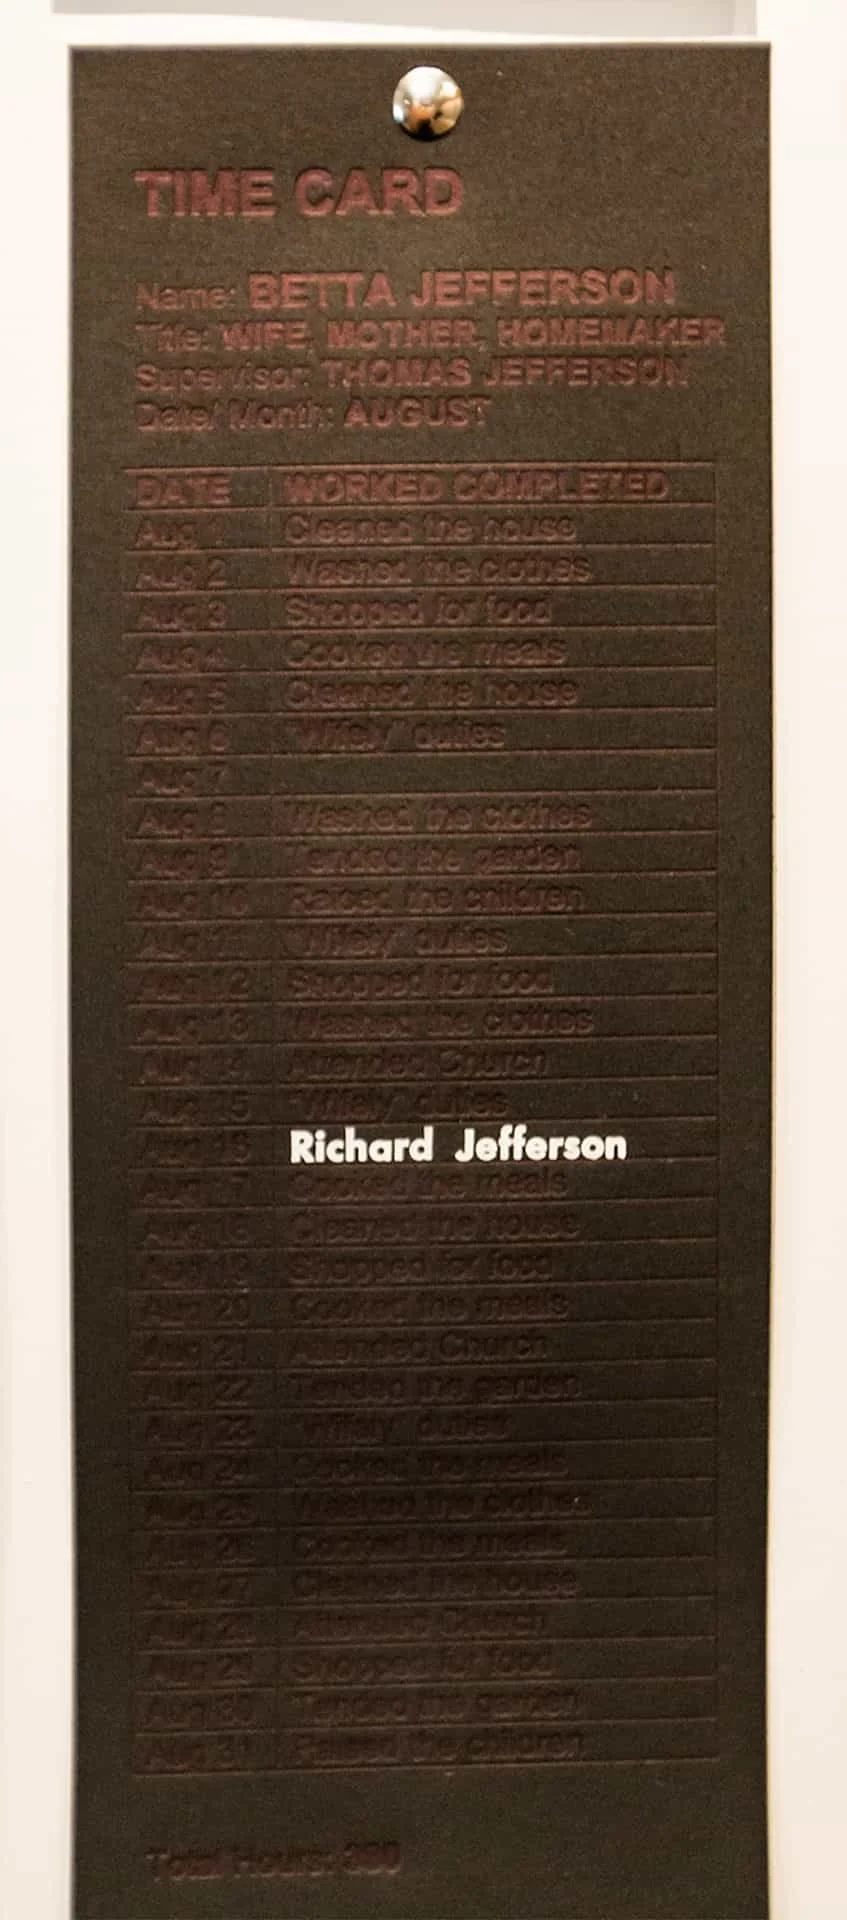 TIME CARD
Name: BETTA JEFFERSON
Title: WIFE, MOTHER, HOMEMAKER
Supervisor: THOMAS JEFFERSON
Date/ Month: AUGUST
DATE WORKED COMPLETED
Aug 1 Cleaned the house
Aug 2 Washed the clothes
Aug 3 Shopped for food
Aug 4 Cooked the meals
Aug 5 Cleaned the house
Aug 6 "Wifely" duties
Aug 7
Aug 8 Washed the clothes
Aug 9 Tended the garden
Aug 10 Raised the children
Aug 11 "Wifely" duties
Aug 12 Shopped for food
Aug 13 Washed the clothes
Aug 14 Attended Church
Aug 15 "Wifely" duties
Aug 16 Richard Jefferson
Aug 17 Cooked the meals
Aug 18 Cleaned the house
Aug 19 Shopped for food
Aug 20 Cooked the meals
Aug 21 Attended Church
Aug 22 Tended the garden
Aug 23 "Wifely" duties
Aug 24 Cooked the meals
Aug 25 Washed the clothes
Aug 26 Cooked the meals
Aug 27 Cleaned the house
Aug 28 Attended Church
Aug 29 Shopped for food
Aug 30 Tended the garden
Aug 31 Raised the children
Total Hours: